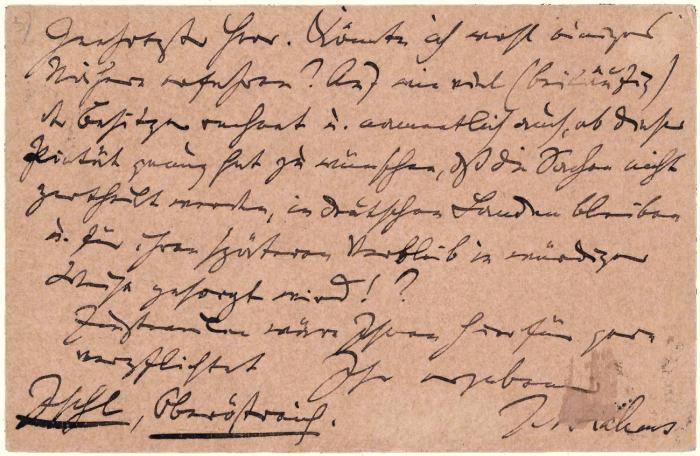 Geehrtester Herr. Könnte ich wohl einiges
Nähere erfahren? Auf wie viel (beiläufig)
der Besitzer rechnet u. namentlich auch, ob dieser
Pietät genug hat zu wünschen, daß die Sachen nicht
zertheilt werden, in deutschen Landen bleiben
u. für ihren späteren Verbleib in würdiger
Weise gesorgt wird! ?
wäre Ihnen hierfür gern
verpflichtet Ihr ergebener
Ischl, Oberöstreich. J. Brahms